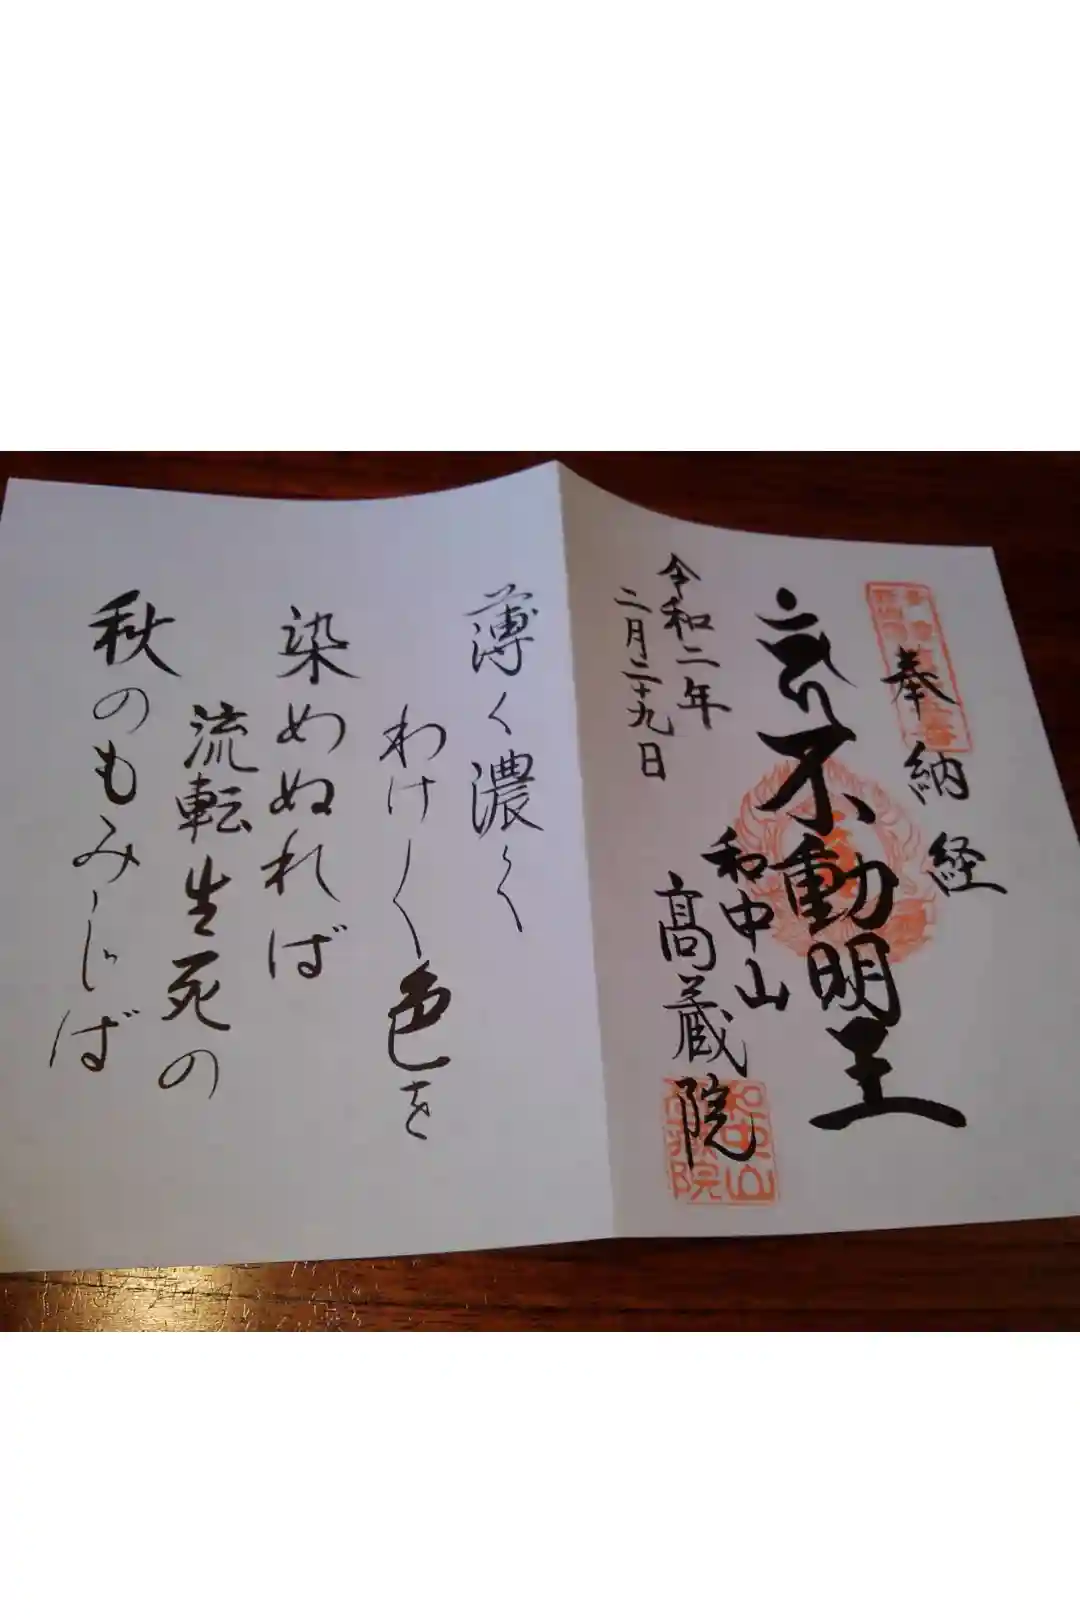 奉納経
不動明王
和中山
高蔵院
令和二年
二月二十九日
薄く濃く
わけく色を
染めぬれば
流転生死の
秋のもみじば
和中山